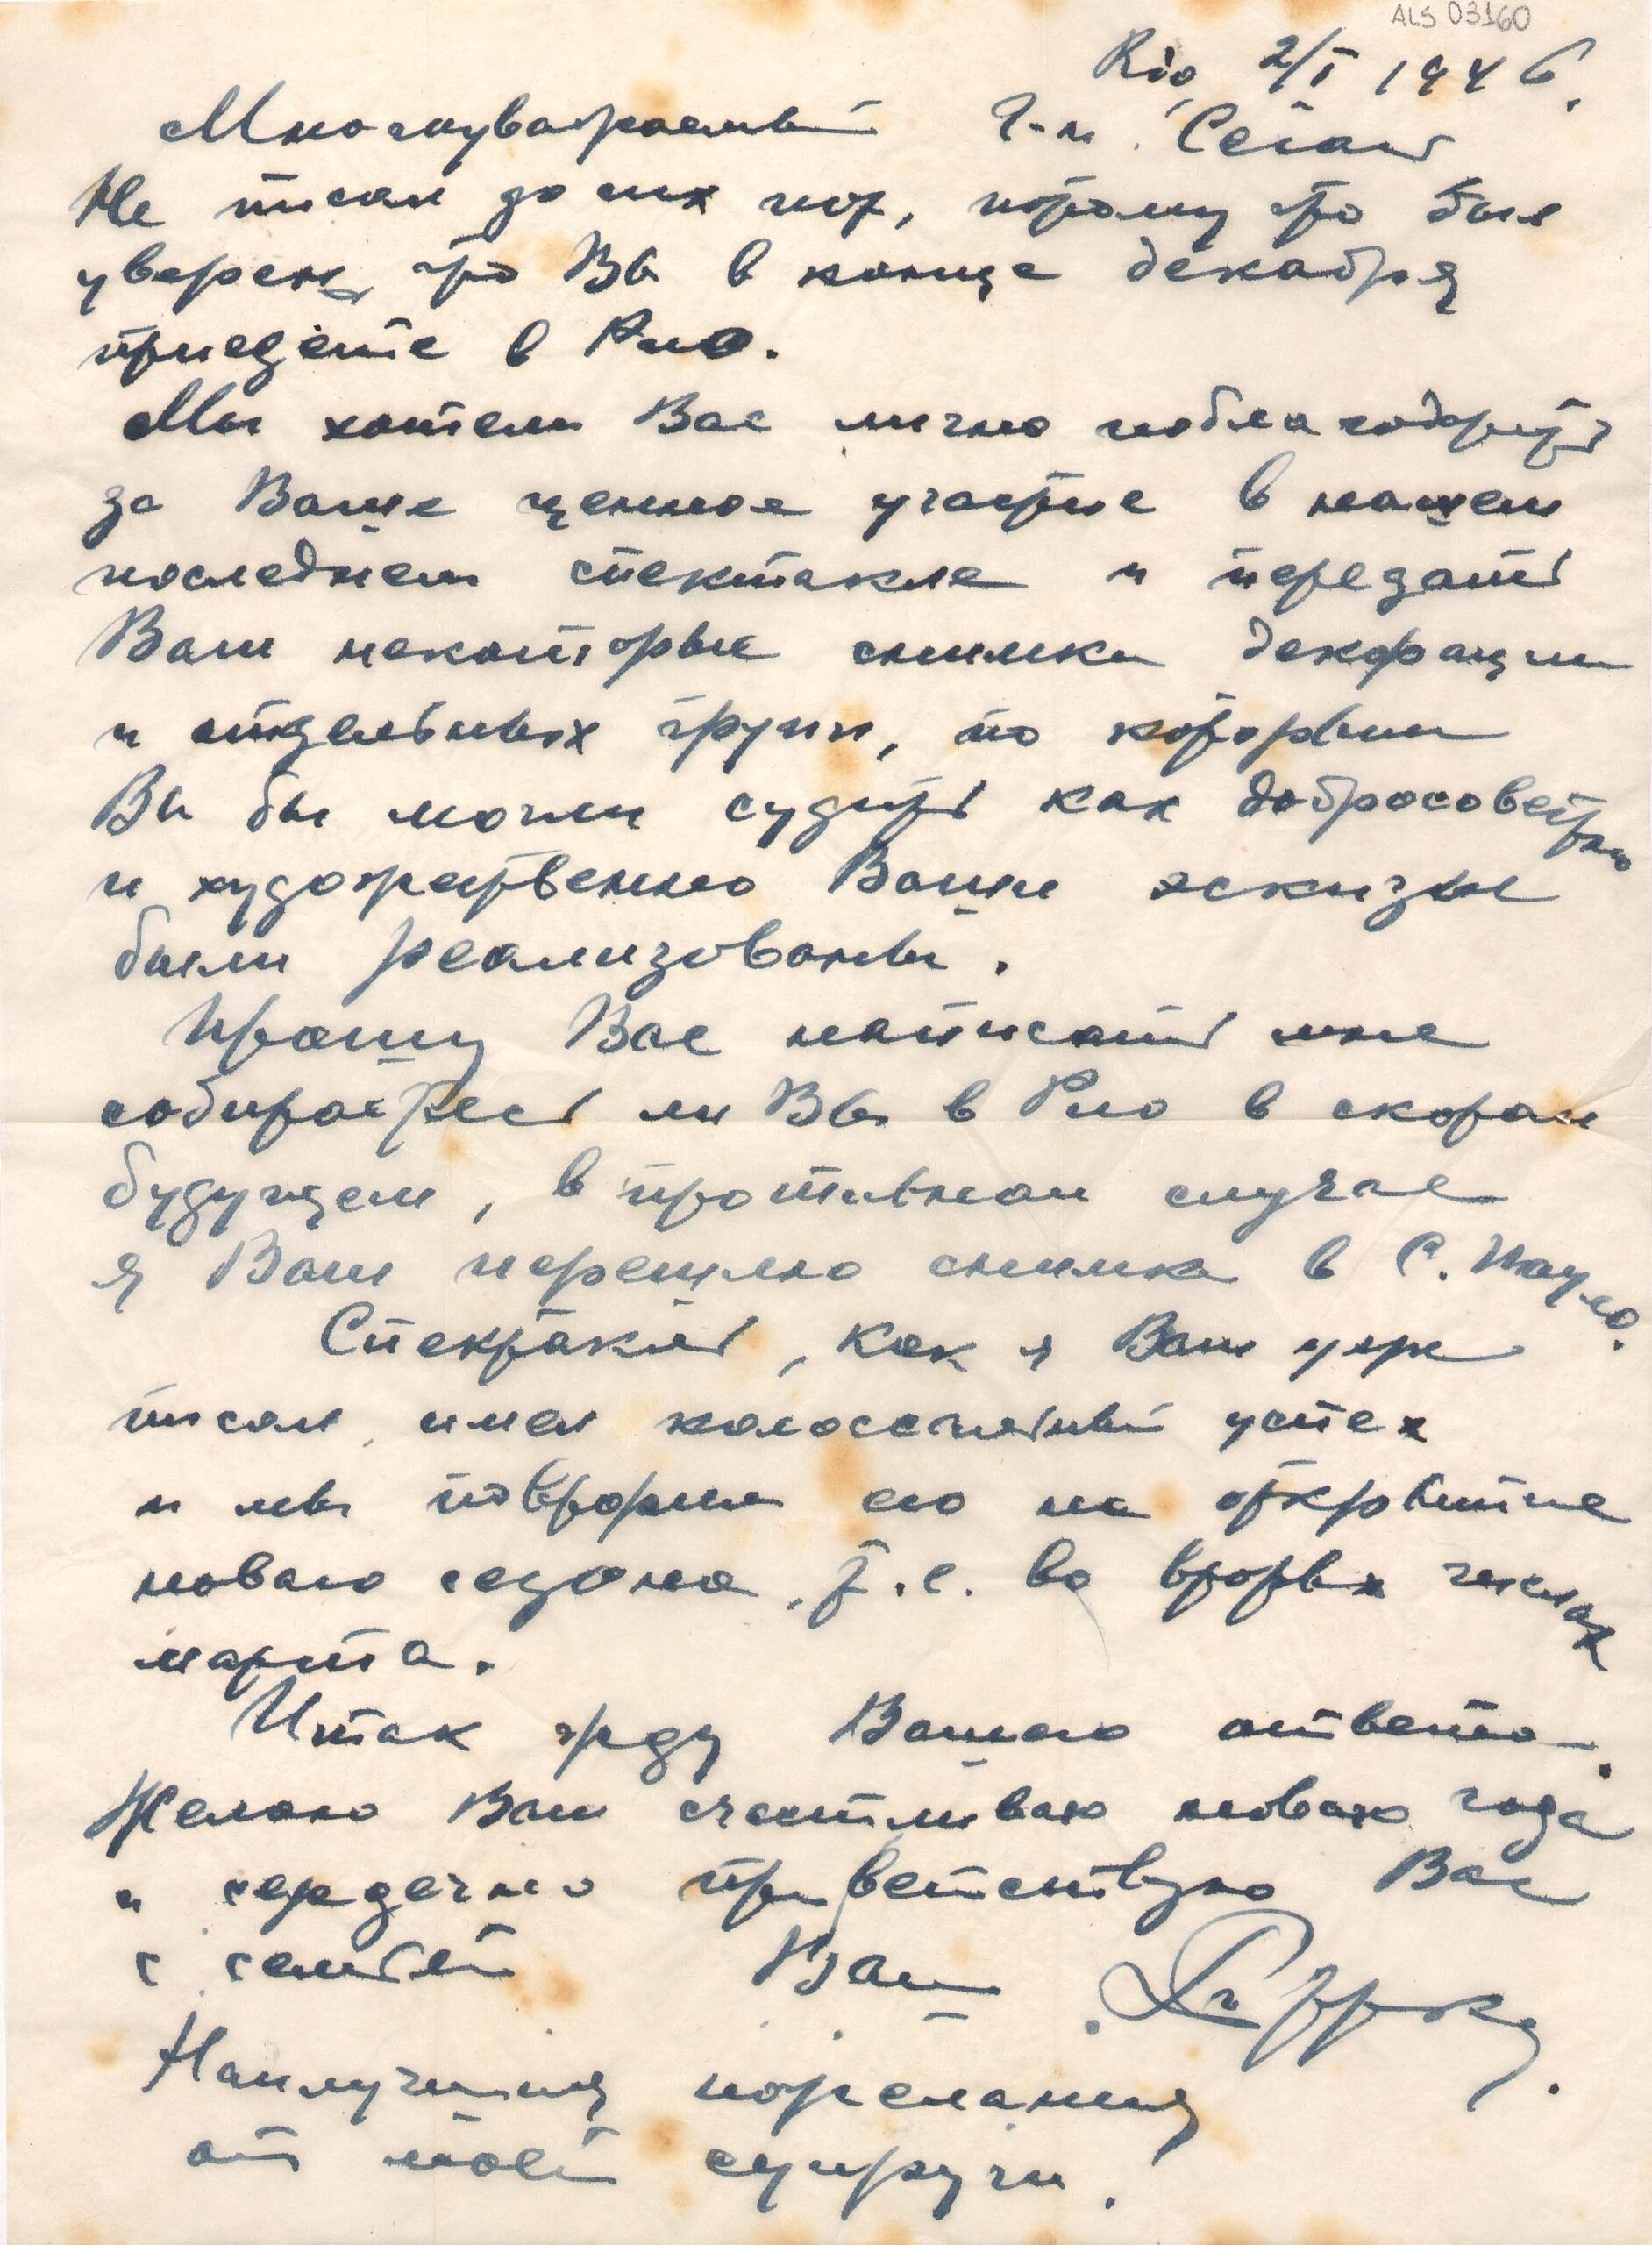 ALS 03160
Rio, 2/I 1946.
Многоуважаемый Г-н Сегал
Не писал до сих пор, потому что был
уверен, что Вы в конце декабря
приедете в Рио.
Мы хотели Вас лично поблагодарить
за Ваше ценное участие в нашем
последнем спектакле и передать
Вам некоторые снимки декорации
и отдельных групп, по которым
Вы бы могли судить как добросовестно
и художественно Ваши эскизы
были реализованы.
Прошу Вас написать мне
собираетесь ли Вы в Рио в скором
будущем, в противном случае
я Вам перешлю снимки в С. Пауло.
Спектакль, как я Вам уже
писал, имел колоссальный успех
и мы повторим его на открытие
нового сезона, т.е. во вторых числах
марта.
Итак жду Вашего ответа.
Желаю Вам счастливаго новаго года
и сердечно приветствую Вас
с семьей Ваш
Наилучшия пожелания
от моей супруги!